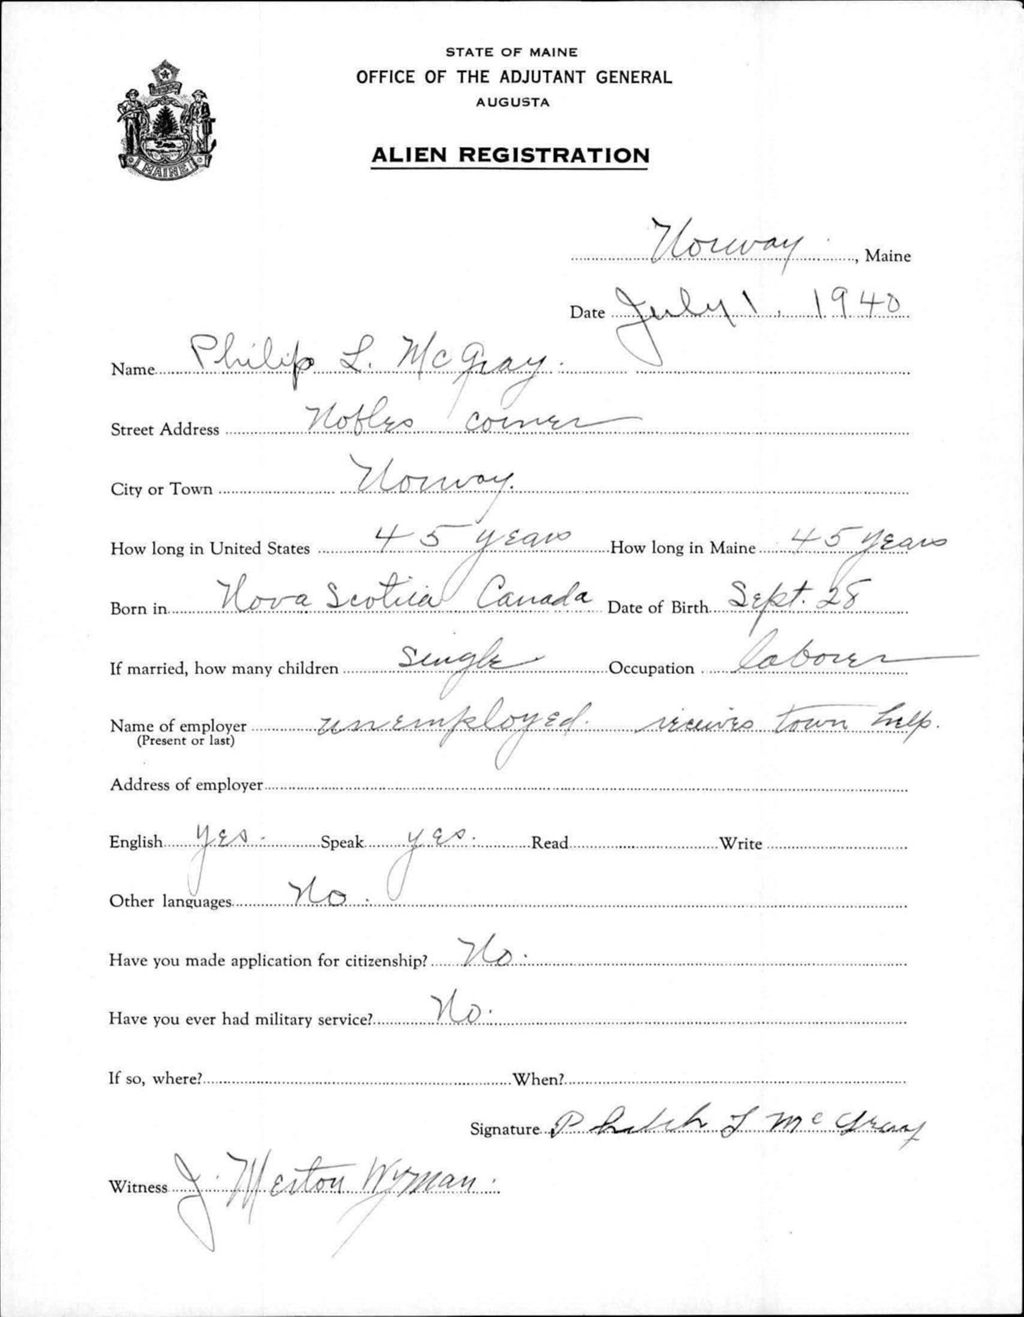 STATE OF MAINE
OFFICE OF THE ADJUTANT GENERAL
AUGUSTA
ALIEN REGISTRATION
MAINE
Norway, Maine
Date July 1, 1940
Name Philip L. McGray.
Street Address Nobles corner
City or Town Norway.
How long in United States 45 years How long in Maine 45 years
Born in Nova Scotia Canada Date of Birth Sept. 28
If married, how many children Single Occupation laborer
Name of employer unemployed. receives town help.
(Present or last)
Address of employer
English yes. Speak yes. Read Write
Other languages No.
Have you made application for citizenship? No.
Have you ever had military service? No.
If so, where? When?
Signature L McGray
Witness J. Merton Wyman.